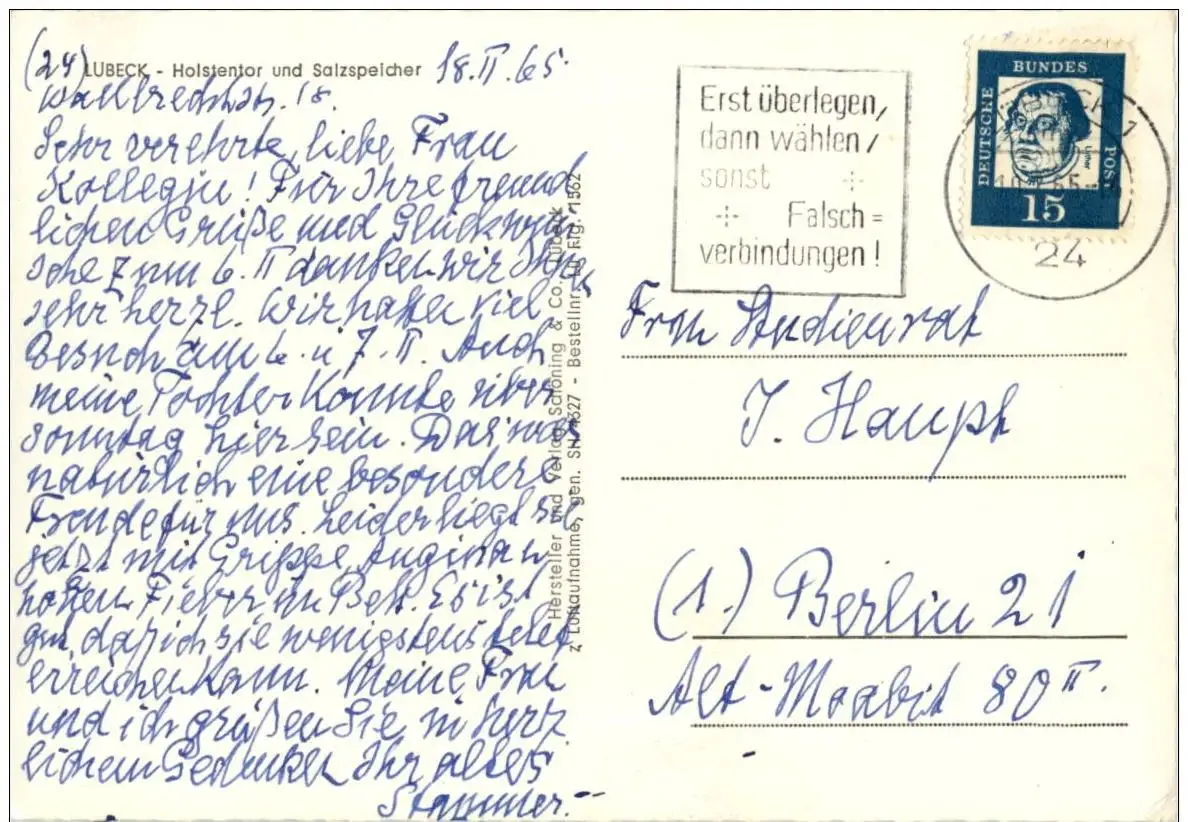 (24) LÜBECK - Holstentor und Salzspeicher 18.II.65.
Wallbrechtstr. 18.
Sehr verehrte, liebe Frau
Kollegin! Für Ihre freund-
lichen Grüße und Glückwün-
sche zum 6. II danken wir Ihnen
sehr herzl. Wir hatten viel
Besuch am 6. u 7. II. Auch
meine Tochter konnte über
Sonntag hier sein. Das war
natürlich eine besondere
Freude für uns. Leider liegt sie
jetzt mit Grippe, Angina u
hohem Fieber im Bett. Es ist
gut, daß ich sie wenigstens telef
erreichen kann. Meine Frau
und ich grüßen Sie in herz-
lichem Gedenken Ihr altes
Stammer.
Hersteller und Verlag Schöning & Co., Lübeck
z. Luftaufnahme, gen. SH 1327 - Bestellnr. Lü Flg. 1562
Erst überlegen,
dann wählen,
sonst
Falsch=
verbindungen!
DEUTSCHE BUNDES POST
Luther
15
24
Frau Studienrat
J. Haupt
(1.) Berlin 21
Alt-Moabit 80 II.